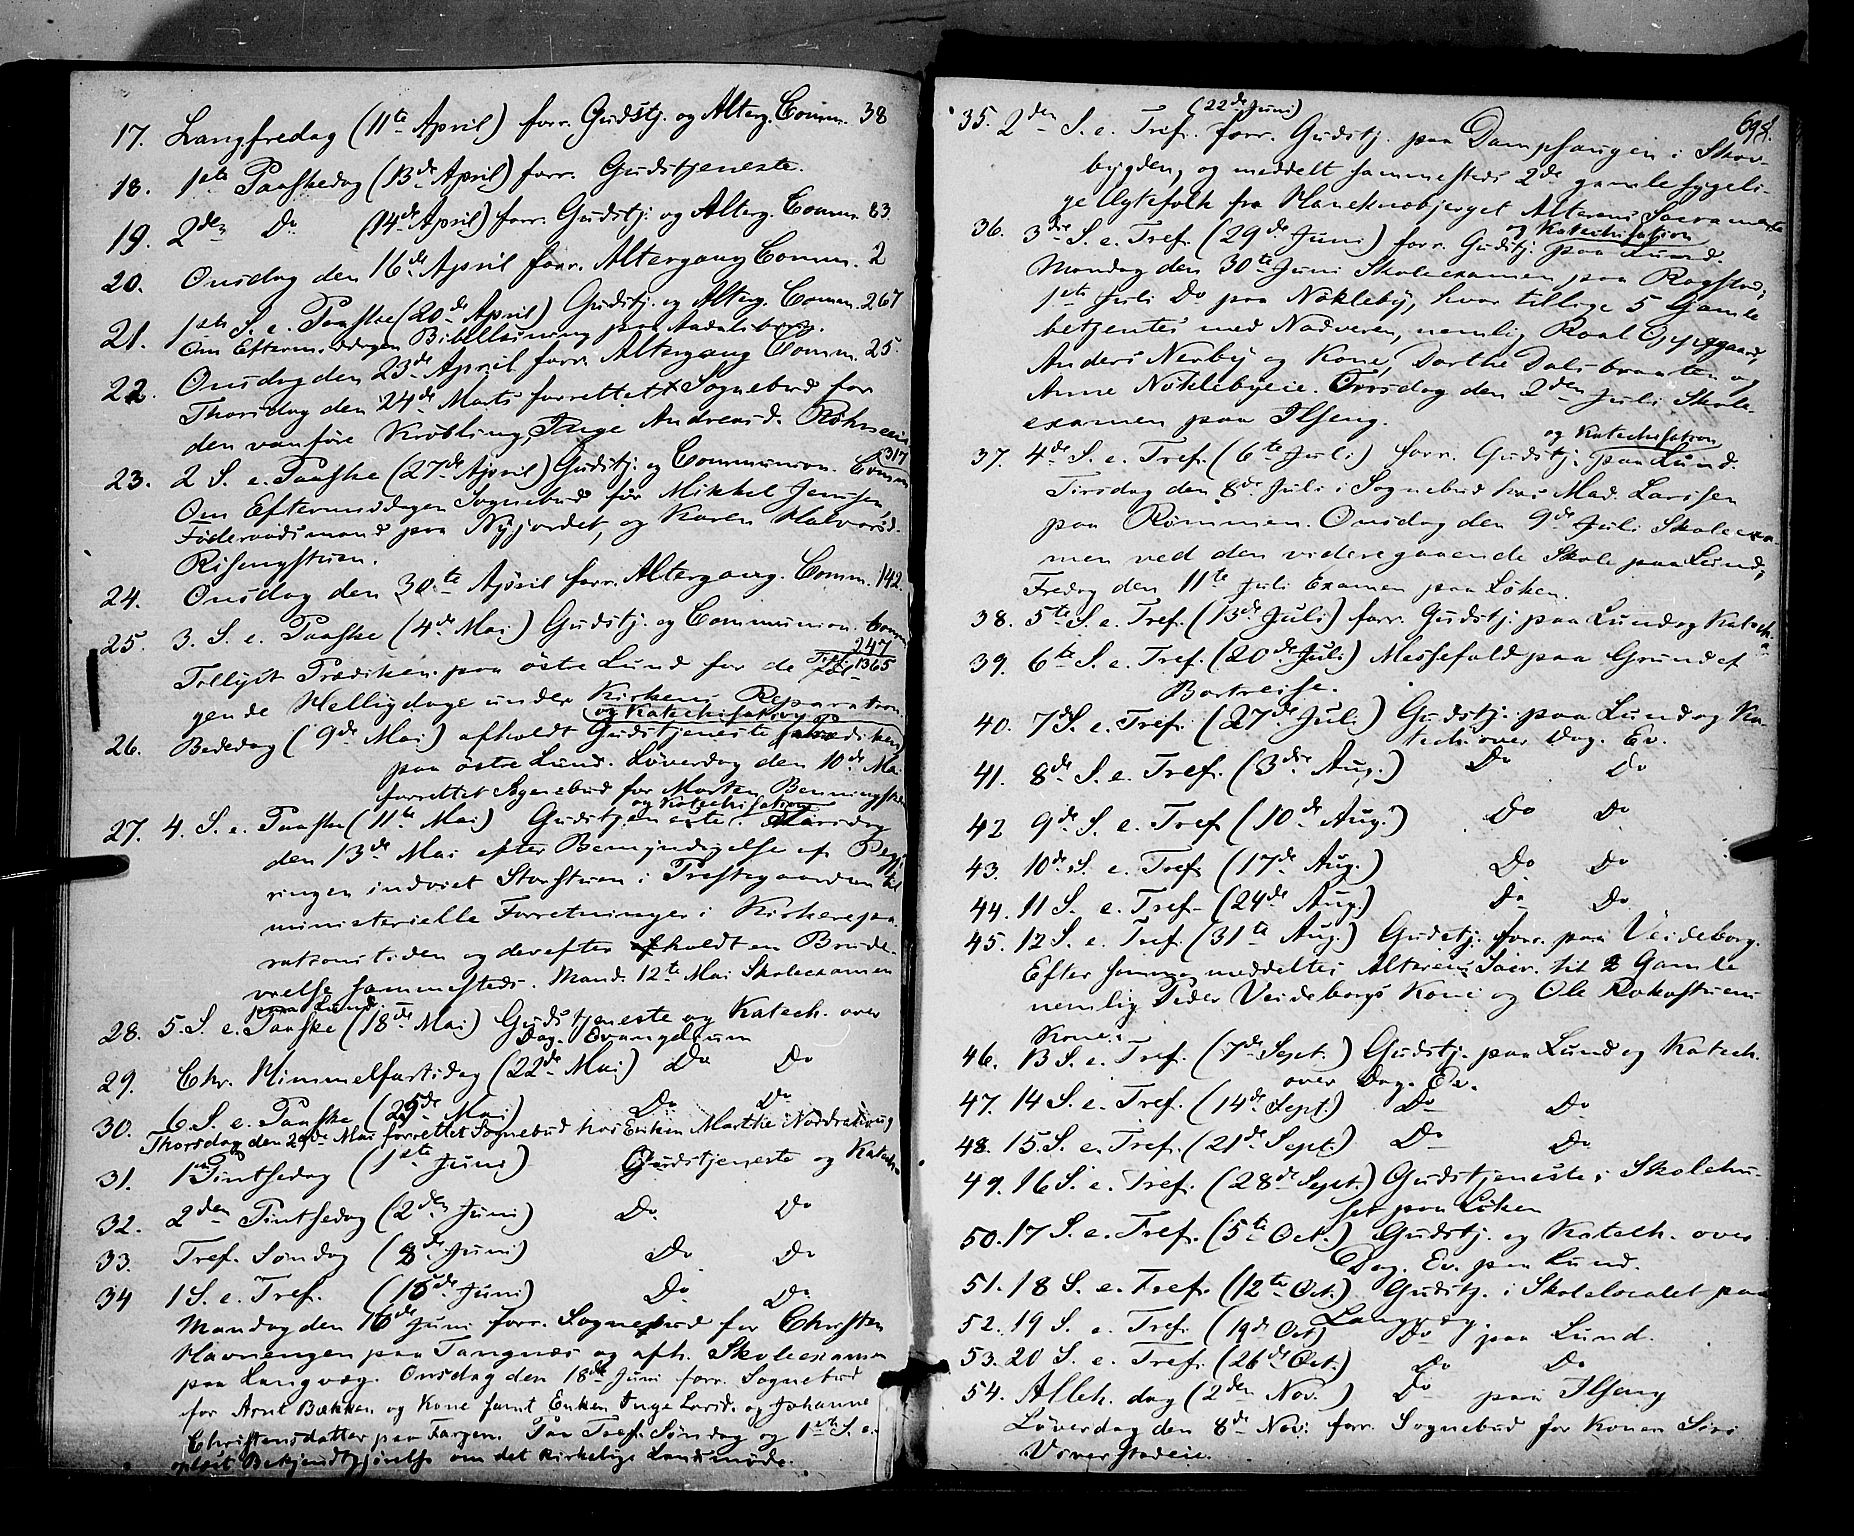 17. Langfredag (11te April) forr. Gudstj. og Alterg. Comm. 38
18. 1ste Paaskedag (13de April) forr. Gudstjeneste.
19. 2den Do (14de April) forr. Gudstj. og Alterg. Comm. 83
20. Onsdag den 16de April forr. Altergang Comm. 2
21. 1ste S. e. Paaske (20de April) Gudstj. og Alterg. Comm. 267
Om Efterm.ddagen Bibellæsning paa Aadalsborg.
22. Onsdag den 23de April forr. Altergang Comm. 25.
Thorsdag den 24de Marts forrettet Sognebud for
den vanföre Krøbling, Inge Andreasd.
317
23. 2 S. e. Paaske (27de April) Gudstj. og Communion. Comm
Om Eftermiddagen Sognebud för Mikkel Jensen,
Föderaadsmand paa Nyjordet, og Karen Halvorsd.
Risengstuen.
24. Onsdag den 30te April forr. Altergang. Comm. 142.
25. 3. S. e. Paaske (4de Mai) Gudstj. og Communion. Comm
247
Tillyst Prædiken paa östre Lund for de föl- Til. 1365
gende Helligdage under Kirkens Reparation.
og Katechisation
26. Bededag (9de Mai) afholdt Gudstjeneste
paa östre Lund. Löverdag den 10de Mai
forrettet Sognebud for Morten
og Katechisation
27. 4. S. e. Paaske (11te Mai) Gudstjeneste.
den 13de Mai efter Bemyndigelse af Regje
ringen indviet Storstuen i Præstegaarden til
ministerielle Forretninger i Kirkerepa-
rationstiden og derefter afholdt en Brude-
vielse sammesteds. Mand. 12te Mai Skoleexamen
paa Lund.
28. 5. S. e. Paaske (18de Mai) Gudstjeneste og Katech. over
Dag. Evangelium
29. Chr. Himmelfartsdag (22de Mai) Do Do
30. 6 S. e. Paaske (25de Mai) Do Do
Thorsdag den 29de Mai forrettet Sognebud hos Enken Marthe
31. 1ste Pintsedag (1ste Juni) Gudstjeneste og Katech.
32. 2den Pintsedag (2den Juni) Do Do
33. Tref. Søndag (8de Juni) Do Do
34 1 S. e. Tref. (15de Juni) Do Do
Mandag den 16de Juni forr. Sognebud for Christen
Havnengen paa Tangnæs og afh. Skoleexamen
paa Langvæg. Onsdag den 18de Juni forr. Sognebud
for Arnt Bækken og Kone samt Enken Inge Larsd. og Johanne
Christensdatter paa Fargen. Paa Tref. Søndag og 1ste S. e.
oplæst Bekjendtgjörelse om det kirkelige Landsmöde.
698.
(22de Juni)
35. 2den S. e. Tref. forr. Gudstj. paa Dampsaugen i Skov-
bygden, og meddelt sammesteds 2de gamle sygeli-
ge Ægtefolk fra Haneknobjerget Alterens Sacramente
og Katechisation
36. 3die S. e. Tref. (29de Juni) forr. Gudstj. paa Lund.
Mandag den 30te Juni Skoleexamen paa Rogstad;
1ste Juli Do paa Nökleby, hvor tillige 5 Gamle
betjentes med Nadveren, nemlig Roal Oppegaard,
Anders Nerby og Kone, Dorthe Dalsbraaten og
Anne Nöklebyeie. Torsdag den 2den Juli Skole-
examen paa Ilseng.
og Katechisation
37. 4de S. e. Tref. (6te Juli) forr. Gudstj. paa Lund.
Tirsdag den 8de Juli i Sognebud hos Mad. Larsen
paa Rommen. Onsdag den 9de Juli Skoleexa-
men ved den videregaaende Skole paa Lund;
Fredag den 11te Juli Examen paa Löken.
38. 5te S. e. Tref. (13de Juli) forr. Gudstj. paa Lund og Katech.
39. 6te S. e. Tref. (20de Juli) Messefald paa Grund af
Bortreise.
40. 7de S. e. Tref. (27de Juli) Gudstj. paa Lund og Ka-
tech. over Dag. Ev.
41. 8de S. e. Tref. (3die Aug.) Do Do
42 9de S. e. Tref (10de Aug.) Do Do
43. 10de S. e. Tref (17de Aug.) Do Do
44. 11 S. e. Tref. (24de Aug.) Do Do
45. 12 S. e. Tref. (31te Aug.) Gudstj. forr. paa Veideborg.
Efter samme meddeltes Alterens Sacr. til 2 Gamle
nemlig Peder Veideborgs Kone og Ole Rokostuens
Kone.
46. 13 S. e. Tref. (7de Sept.) Gudstj. paa Lund og Katech.
over Dag. Ev.
47. 14 S. e. Tref. (14de Sept.) Do Do
48. 15. S. e. Tref. (21de Sept.) Do Do
49. 16 S. e. Tref. (28de Sept.) Gudstjeneste i Skolehu-
set paa Löken
50. 17 S. e. Tref. (5te Oct.) Gudstj. og Katech. over
Dag. Ev. paa Lund.
51. 18 S. e. Tref. (12te Oct.) Gudstj. i Skolelocalet paa
Langvæg.
52. 19 S. e. Tref (19de Oct) Do paa Lund.
53. 20 S. e. Tref. (26de Oct.) Do Do
54. Alleh. dag (2den Nov.) Do paa Ilseng
Löverdag den 8de Nov. forr. Sognebud for Konen Siri